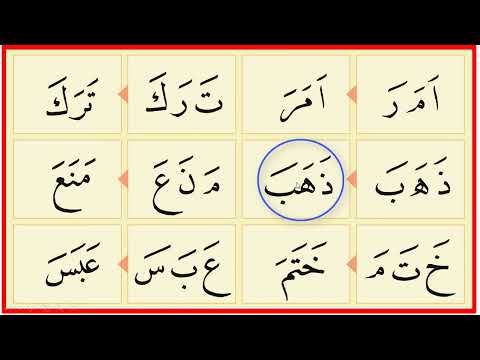 اَ مَ رَ اَمَرَ تَ رَ كَ تَرَكَ
ذَ هَ بَ ذَهَبَ مَ نَ عَ مَنَعَ
خَ تَ مَ خَتَمَ عَ بَ سَ عَبَسَ